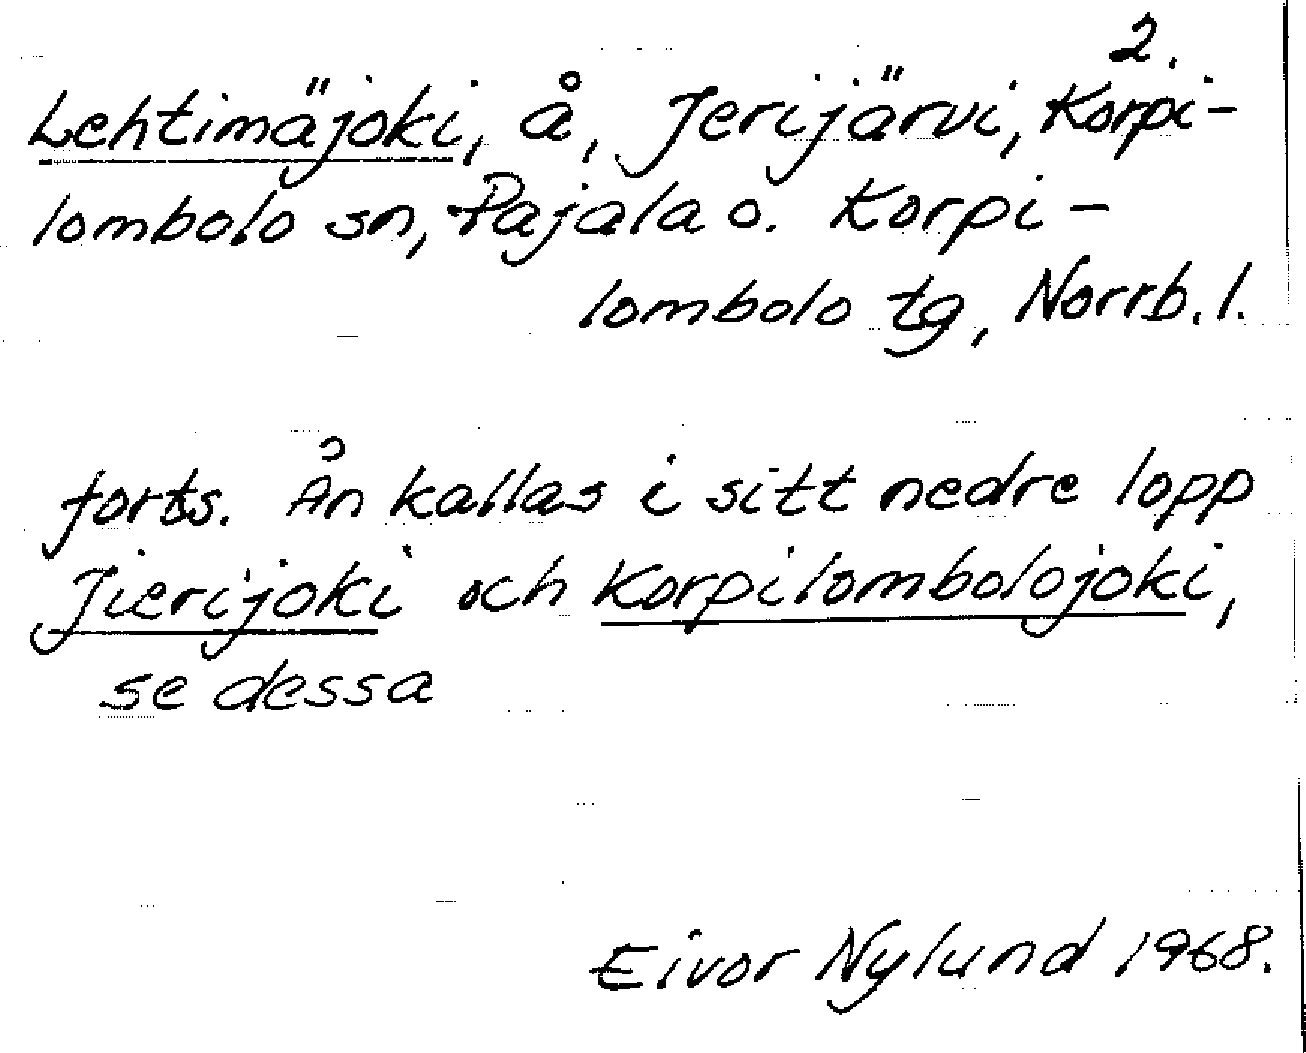 2.
Lehtimäjoki, å, Jerijärvi, Korpi-
lombolo sn, Pajala o. Korpi-
lombolo tg, Norrb. l.
forts. Ån kallas i sitt nedre lopp
Jierijoki och Korpilombolojoki,
se dessa
Eivor Nylund 1968.